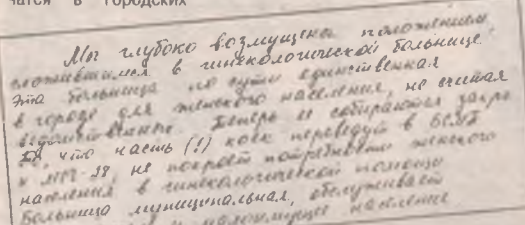 в городских
Мы глубоко возмущены положением,
сложившимся в гинекологической больнице.
Эта больница по сути единственная
в городе для женского населения, не считая
ведомственные. Теперь и собираются закры
что часть (!) коек переведут в БСМП
к МСЧ-28, не покроет потребность женского
населения в гинекологической помощи
Больница муниципальная, обслуживает
и малоимущее население